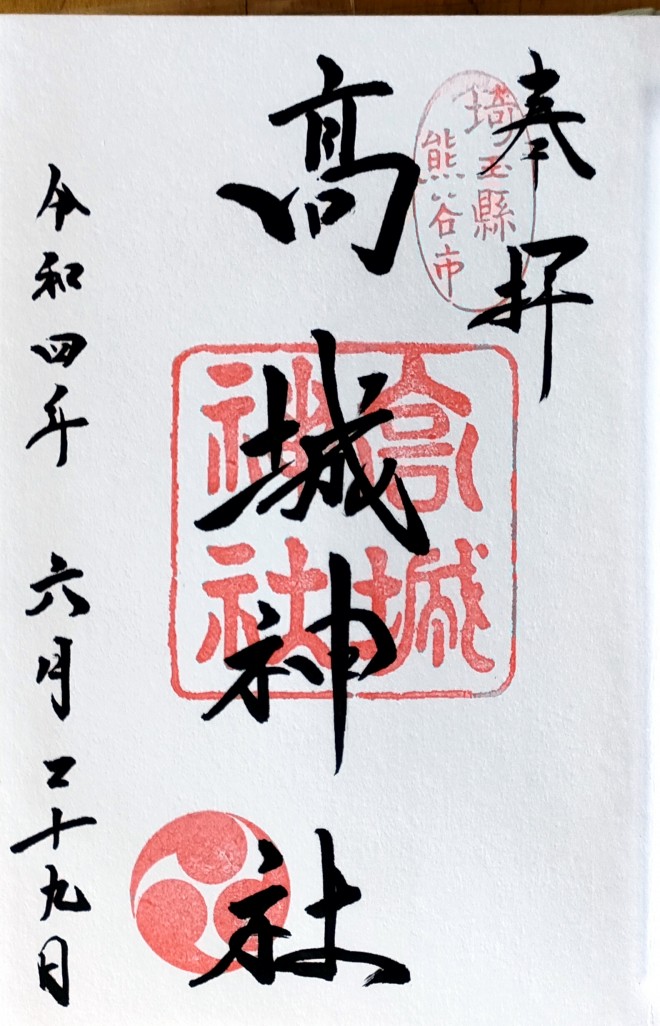 奉拝
埼玉縣
熊谷市
高城神社
高城
神社
令和四年 六月二十九日